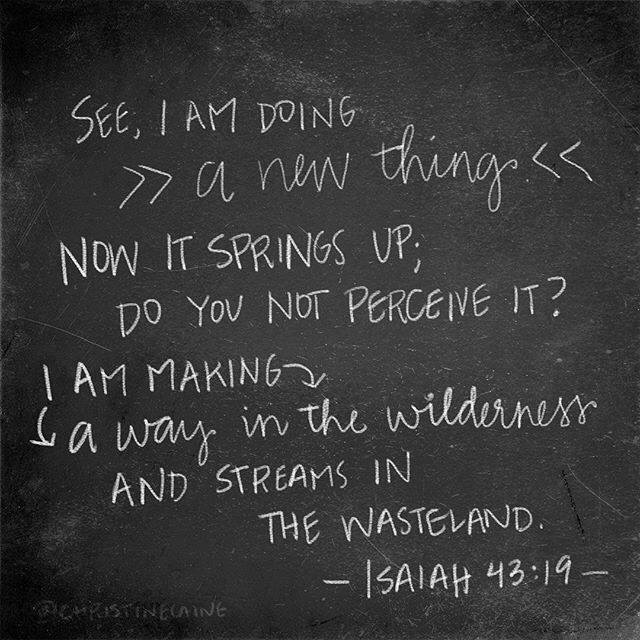 SEE, I AM DOING
>> a new thing. <<
NOW IT SPRINGS UP;
DO YOU NOT PERCEIVE IT?
I AM MAKING
a way in the wilderness
AND STREAMS IN
THE WASTELAND.
— ISAIAH 43:19 —
@CHRISTINELAINE